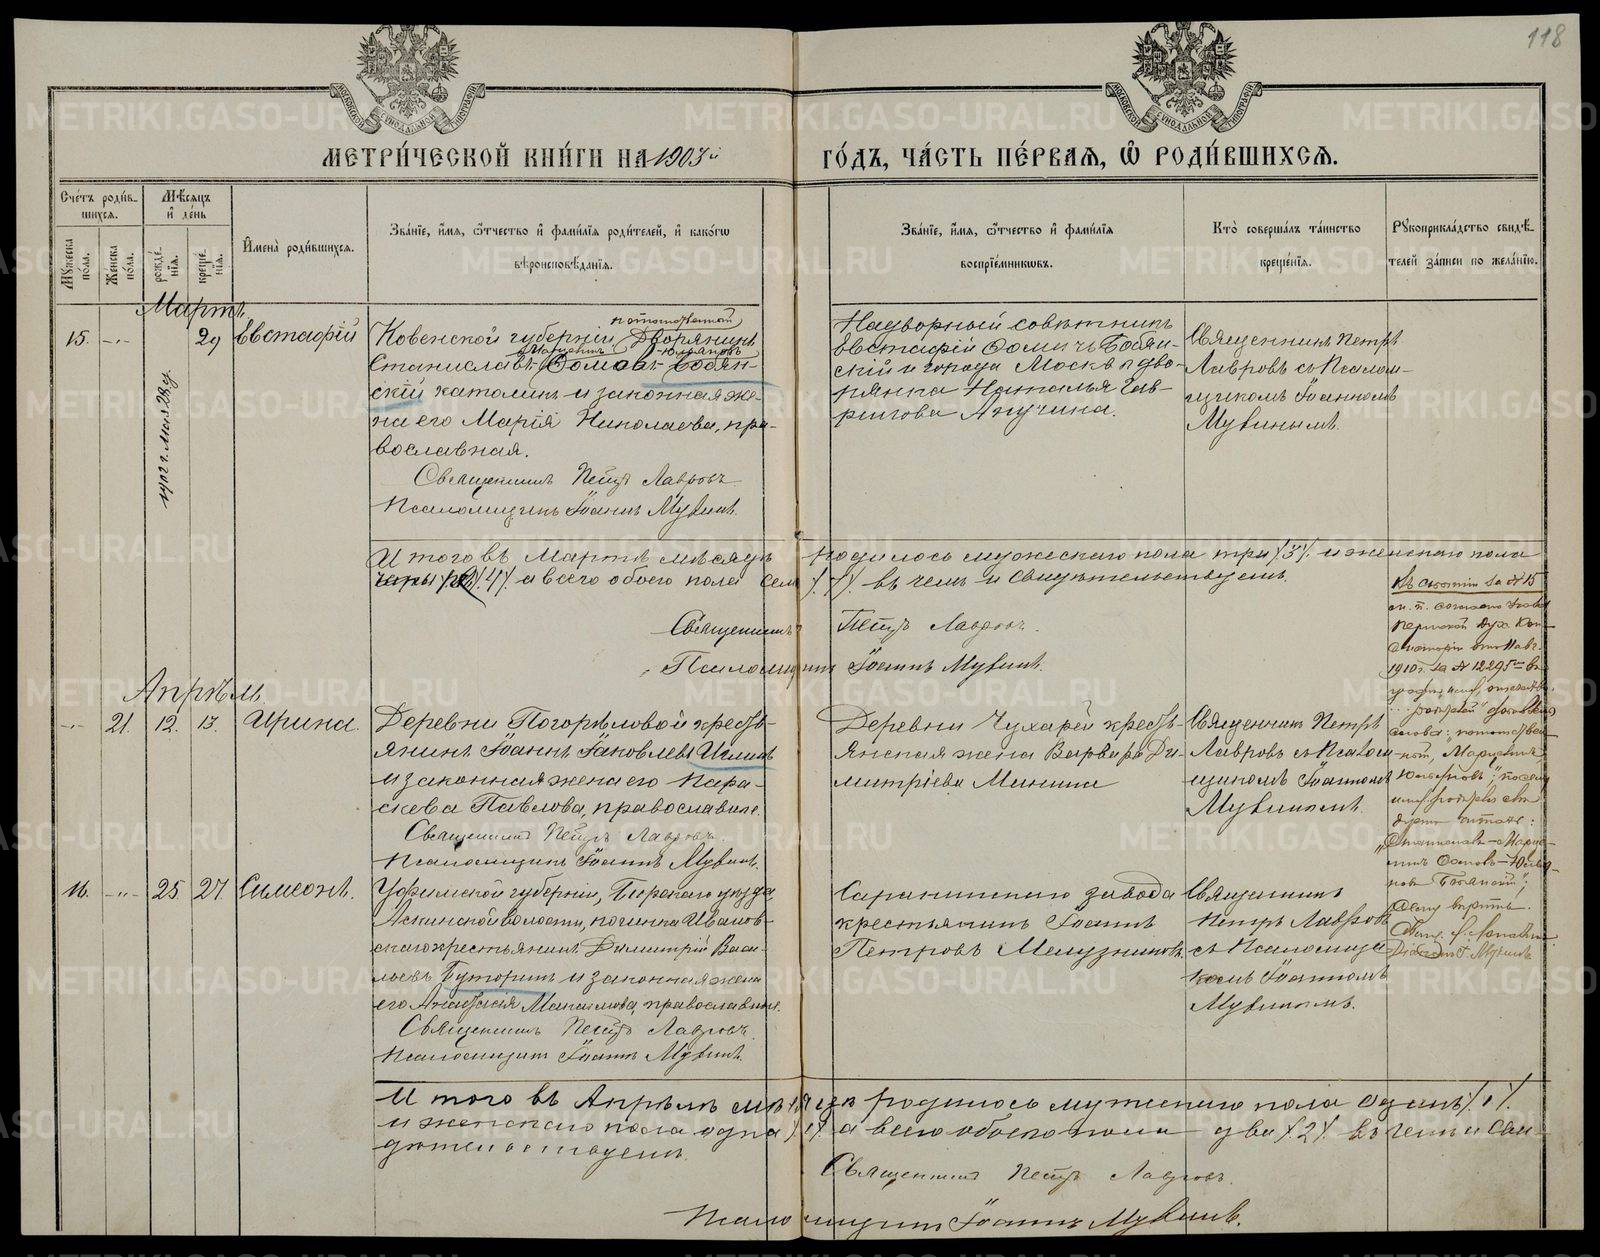 118
МОСКОВСКОЙ СѴНОДАЛЬНОЙ ТИПОГРАФІИ
МОСКОВСКОЙ СѴНОДАЛЬНОЙ ТИПОГРАФІИ
МЕТРИ́ЧЕСКОЙ КНИ́ГИ НА 1903й
ГО́ДЪ, ЧА́СТЬ ПЕ́РВАЯ, Ѿ РОДИ́ВШИХСЯ.
Сче́тъ роди́в-
шихся.
Мѣ́сяцъ
и де́нь
Мꙋжеска по́ла.
Женска по́ла.
рожде́-нія.
креще́-нія.
Имена̀ роди́вшихся.
Зва́ніе, и́мя, ѻ́тчество и фами́лія роди́телей, и како́гѡ
вѣроисповѣ́данія.
Зва́ніе, и́мя, ѻ́тчество и фами́лія
воспріе́мникѡвъ.
Кто̀ соверша́лъ та́инство
креще́нія.
Рꙋкоприкла́дство свидѣ́-
телей за́писи по жела́нію.
Мартъ
15. -"- 1902 г. Мая 28 д. 29 Евстафій
потомственный
Ковенской губерніи, Дворянинъ
Марцеинъ Юльяновъ
Станиславъ Ѳомовъ Бобян-
скій католикъ и законная же-
на его Марія Николаева, пра-
вославная.
Священникъ Петръ Лавровъ
Псаломщикъ Іоаннъ Мувинъ.
Надворный совѣтникъ
Евстафій Ѳомичъ Бобян-
скій и города Москвы дво-
рянка Наталья Гав-
рилова Апучина.
Священникъ Петръ
Лавровъ съ Псалом-
щикомъ Іоанномъ
Мувинымъ.
И того въ Мартѣ мѣсяцѣ родилось мужескаго пола три /3/. и женскаго пола
четыре /4/. а всего обоего пола семь /7/. въ чемъ и свидѣтельствуемъ.
Священникъ Петръ Лавровъ.
Псаломщикъ Іоаннъ Мувинъ.
Въ статьи за № 15
Пермской Дух. Кон-
систоріи
1910 г. за № 12295
Апрѣль.
-"- 21. 12. 13. Ирина.
Деревни Погорѣловой кресть-
янинъ Іоаннъ Іаковлевъ
и законная жена его Пара-
скева Павлова, православные.
Священникъ Петръ Лавровъ.
Псаломщикъ Іоаннъ Мувинъ.
Деревни Чухарей кресть-
янская жена Варвара Ди-
митріева Минина
Священникъ Петръ
Лавровъ съ Псалом-
щикомъ Іоанномъ
Мувинымъ.
16. -"- 25. 27. Симеонъ.
Уфимской губерніи, Бирскаго уѣзда,
Аскинской волости, починка Иванов-
скаго крестьянинъ Димитрій Васи-
льевъ Буторинъ и законная жена
его Анастасія Максимова, православные.
Священникъ Петръ Лавровъ.
Псаломщикъ Іоаннъ Мувинъ.
Саранинскаго завода
крестьянинъ Іоаннъ
Петровъ Мелузниковъ.
Священникъ
Петръ Лавровъ
съ Псаломщи-
комъ Іоанномъ
Мувинымъ.
И того въ Апрѣлѣ мѣсяцѣ родилось мужескаго пола одинъ /1/.
и женскаго пола одна /1/. а всего обоего пола два /2/. въ чемъ и сви-
дѣтельствуемъ.
Священникъ Петръ Лавровъ.
Псаломщикъ Іоаннъ Мувинъ.
METRIKI.GASO-URAL.RU